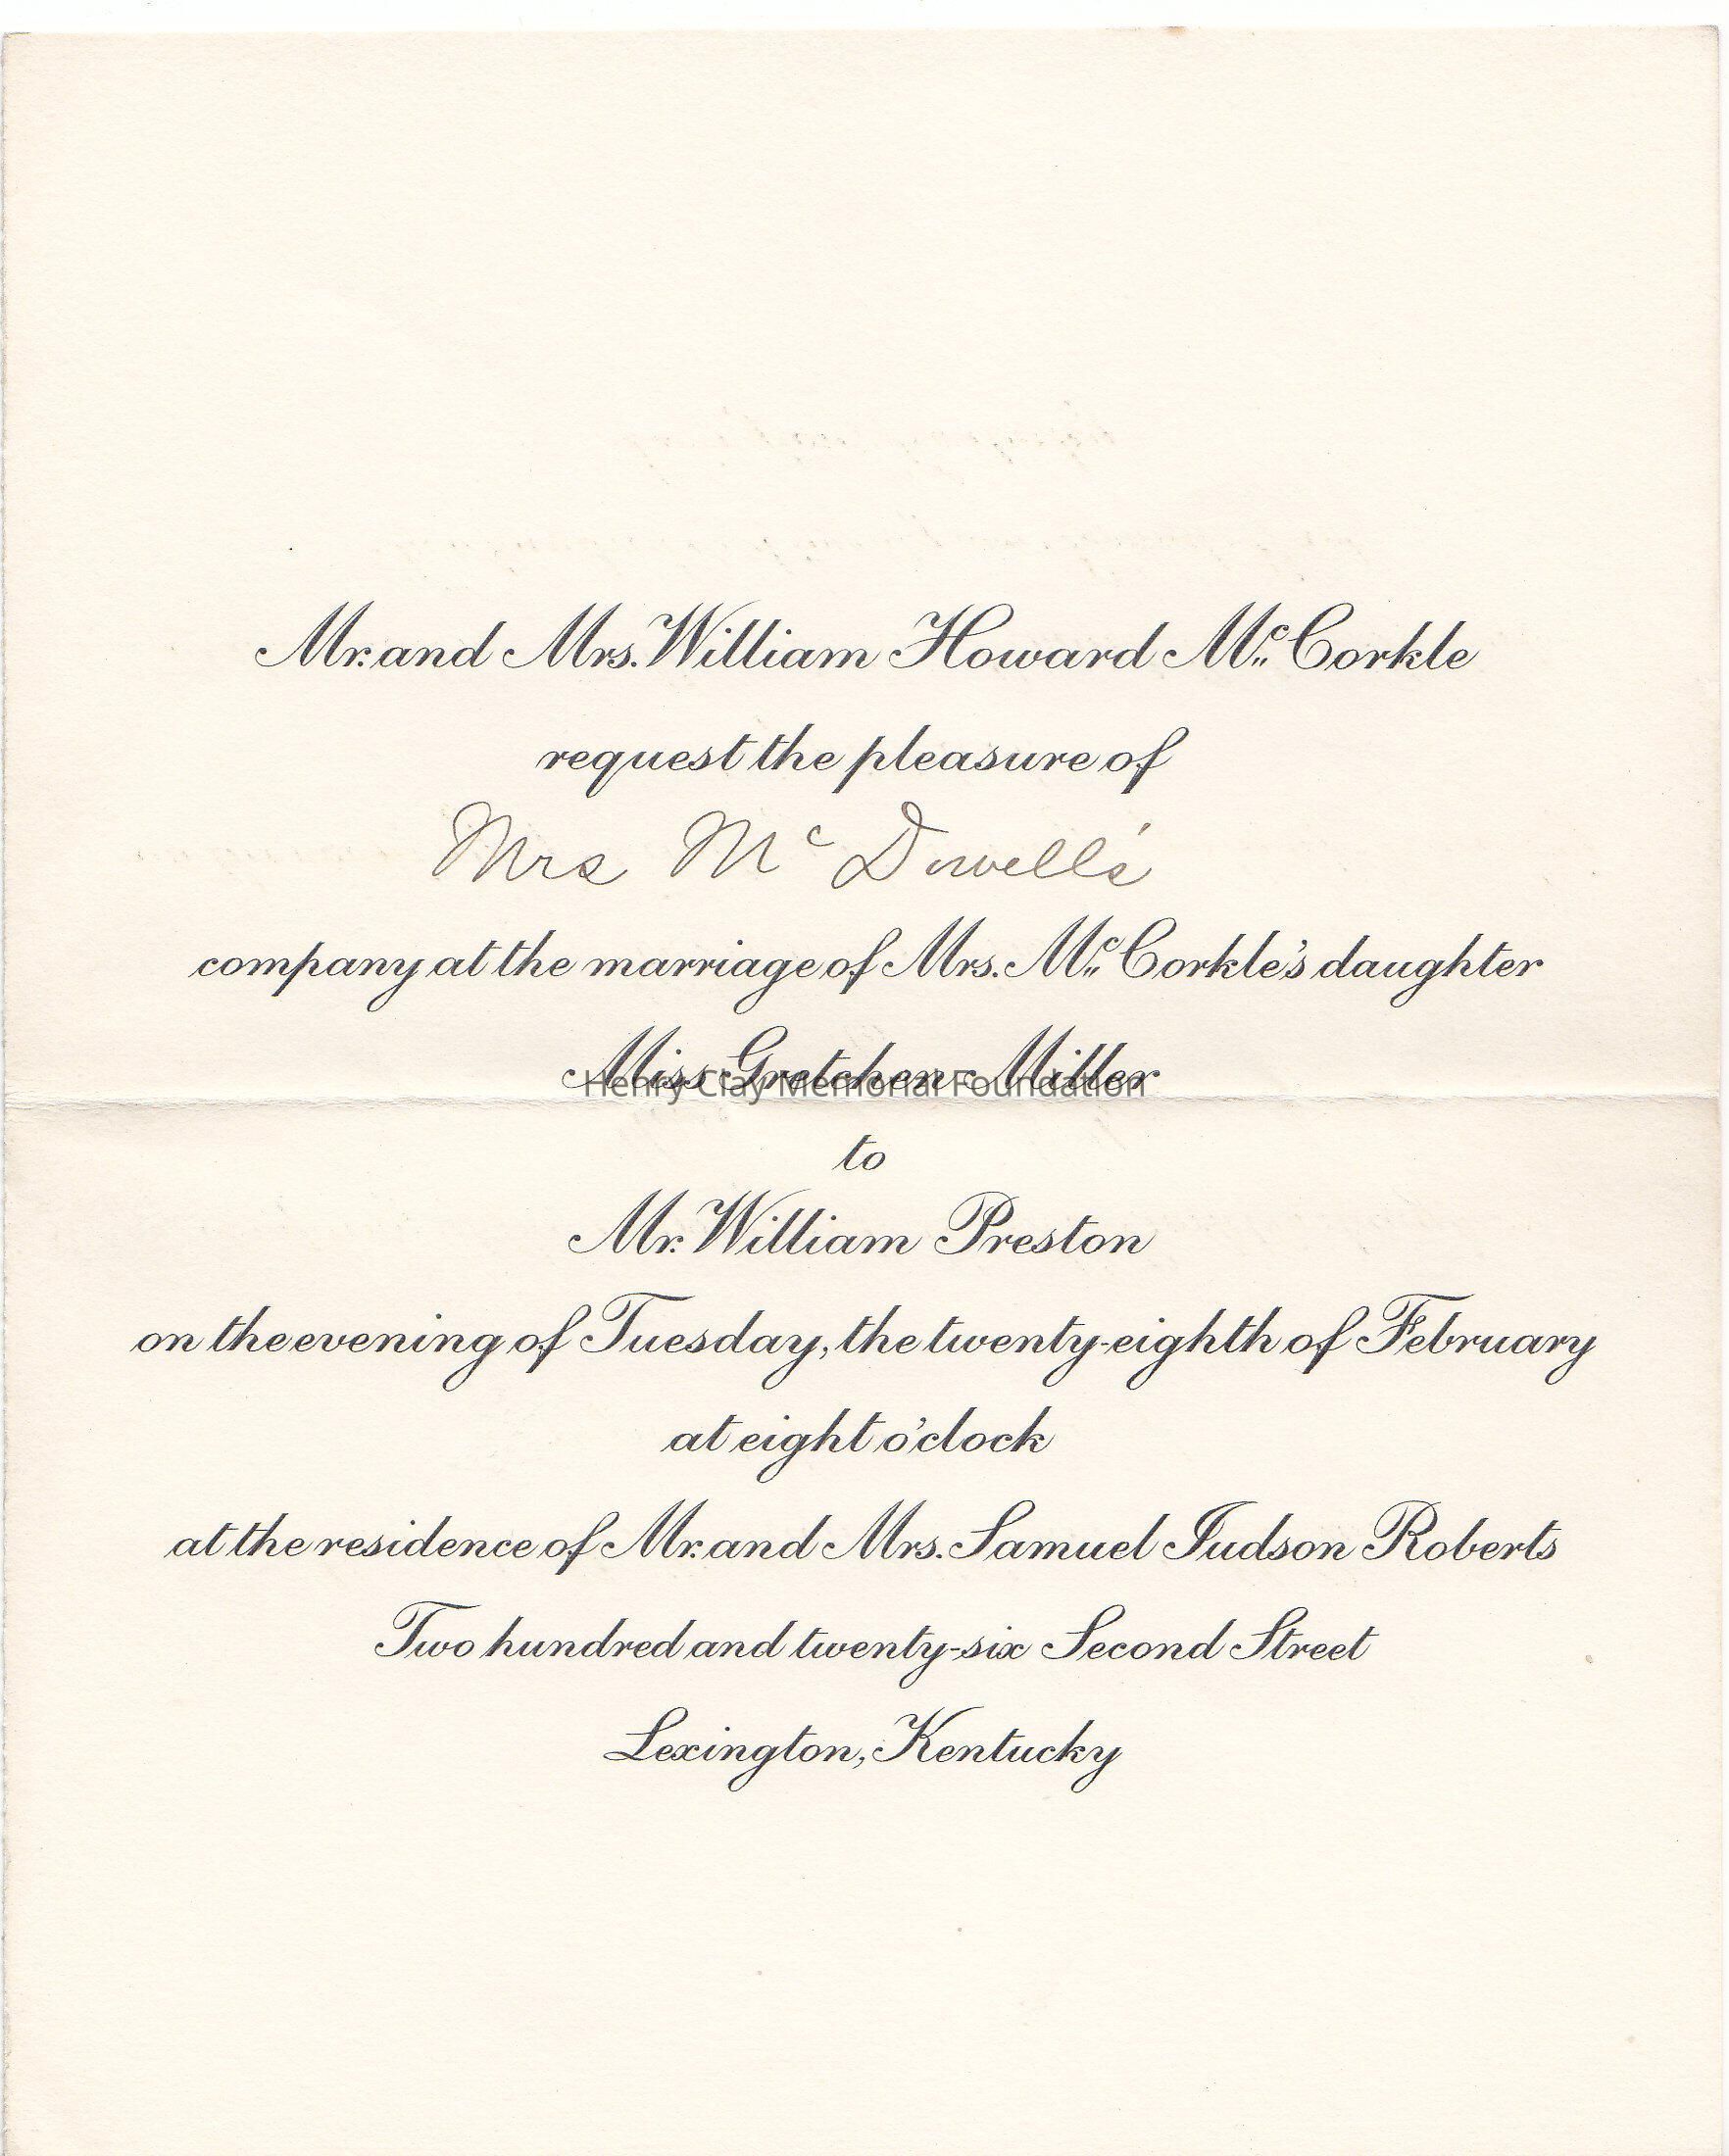 Mr. and Mrs. William Howard Mc Corkle
request the pleasure of
Mrs Mc Dowell's
company at the marriage of Mrs. Mc Corkle's daughter
Miss Gretchen Miller
Henry Clay Memorial Foundation
to
Mr. William Preston
on the evening of Tuesday, the twenty-eighth of February
at eight o'clock
at the residence of Mr. and Mrs. Samuel Judson Roberts
Two hundred and twenty-six Second Street
Lexington, Kentucky